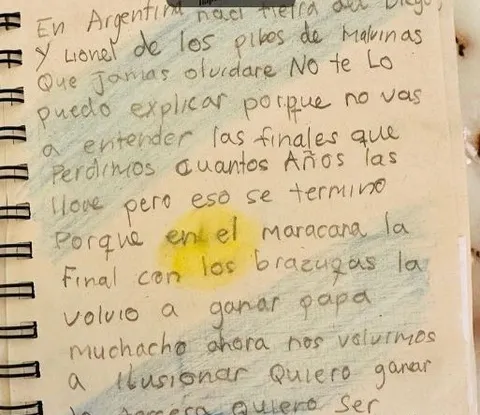 En Argentina naci tierra del Diego,
y Lionel de los pibes de Malvinas
Que jamas olvidare No te Lo
puedo explicar porque no vas
a entender las finales que
Perdimos cuantos Años las
llore pero eso se termino
Porque en el maracana la
Final con los brazucas la
volvio a ganar papa
muchacho ahora nos volvimos
a ilusionar Quiero ganar
la tercera Quiero Ser